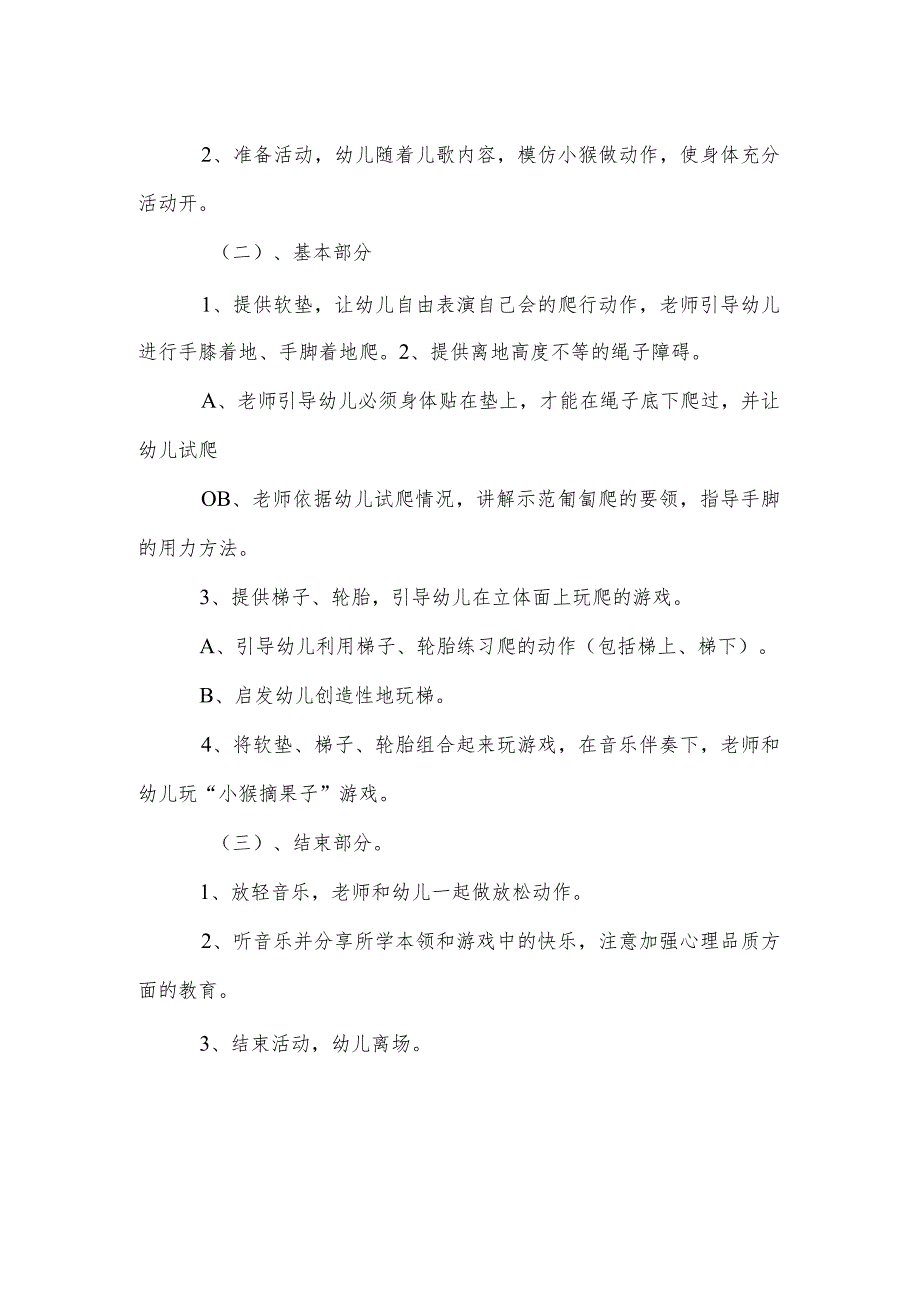 2、准备活动，幼儿随着儿歌内容，模仿小猴做动作，使身体充分
活动开。
（二）、基本部分
1、提供软垫，让幼儿自由表演自己会的爬行动作，老师引导幼儿
进行手膝着地、手脚着地爬。2、提供离地高度不等的绳子障碍。
A、老师引导幼儿必须身体贴在垫上，才能在绳子底下爬过，并让
幼儿试爬
OB、老师依据幼儿试爬情况，讲解示范匍匐爬的要领，指导手脚
的用力方法。
3、提供梯子、轮胎，引导幼儿在立体面上玩爬的游戏。
A、引导幼儿利用梯子、轮胎练习爬的动作（包括梯上、梯下）。
B、启发幼儿创造性地玩梯。
4、将软垫、梯子、轮胎组合起来玩游戏，在音乐伴奏下，老师和
幼儿玩“小猴摘果子”游戏。
（三）、结束部分。
1、放轻音乐，老师和幼儿一起做放松动作。
2、听音乐并分享所学本领和游戏中的快乐，注意加强心理品质方
面的教育。
3、结束活动，幼儿离场。